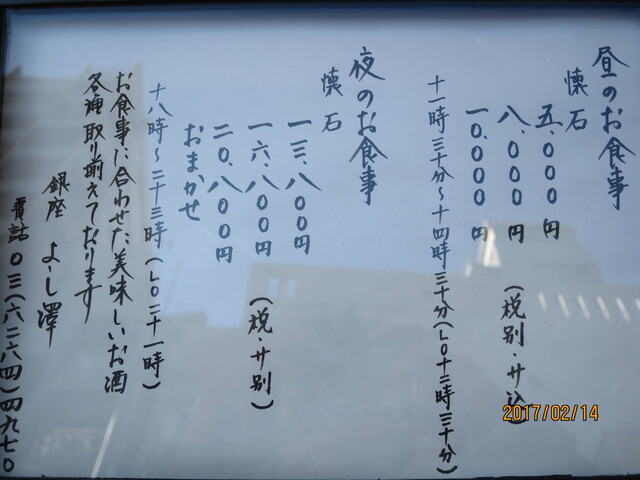 昼のお食事
懐石
五、〇〇〇円
八、〇〇〇円
一〇、〇〇〇円
(税別・サ込)
十一時三十分～十四時三十分(LO十三時三十分)
夜のお食事
懐石
一三、八〇〇円
一六、八〇〇円
二〇、八〇〇円
おまかせ
(税・サ別)
十八時～二十三時(LO二十一時)
お食事に合わせた美味しいお酒
各種取り揃えております
銀座 よし澤
電話 〇三(六二六四)四九七〇
2017/02/14